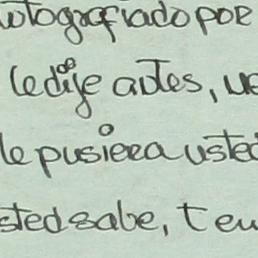 autografiado por
le dije antes, ve
le pusiera usted
sted sabe, ten